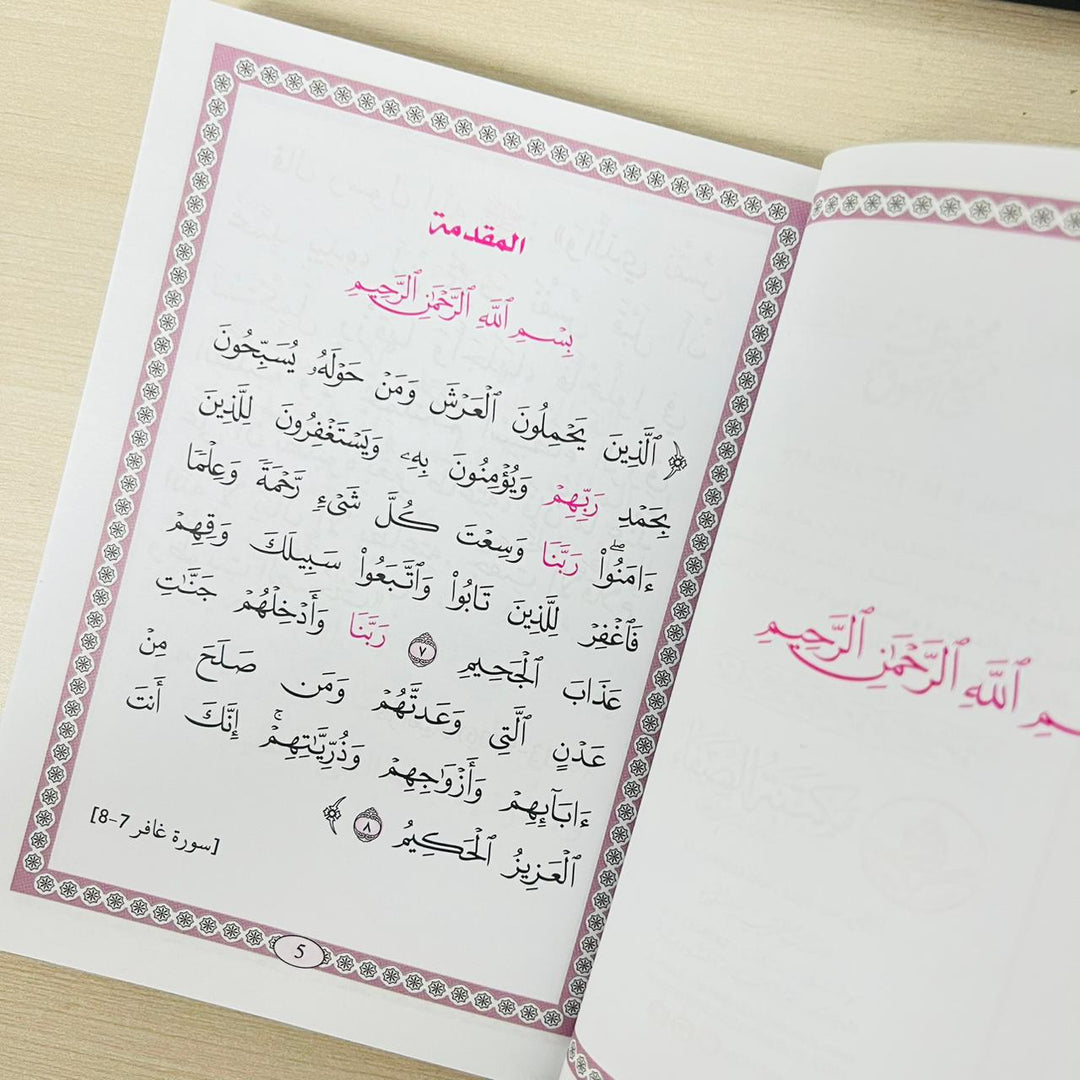 المقدمة
بِسْمِ ٱللَّهِ ٱلرَّحْمَٰنِ ٱلرَّحِيمِ
﴿ ٱلَّذِينَ يَحْمِلُونَ ٱلْعَرْشَ وَمَنْ حَوْلَهُۥ يُسَبِّحُونَ
بِحَمْدِ رَبِّهِمْ وَيُؤْمِنُونَ بِهِۦ وَيَسْتَغْفِرُونَ لِلَّذِينَ
ءَامَنُوا۟ۖ رَبَّنَا وَسِعْتَ كُلَّ شَىْءٍ رَّحْمَةً وَعِلْمًا
فَٱغْفِرْ لِلَّذِينَ تَابُوا۟ وَٱتَّبَعُوا۟ سَبِيلَكَ وَقِهِمْ
عَذَابَ ٱلْجَحِيمِ ٧ رَبَّنَا وَأَدْخِلْهُمْ جَنَّٰتِ
عَدْنٍ ٱلَّتِى وَعَدتَّهُمْ وَمَن صَلَحَ مِنْ
ءَابَآئِهِمْ وَأَزْوَٰجِهِمْ وَذُرِّيَّٰتِهِمْۚ إِنَّكَ أَنتَ
ٱلْعَزِيزُ ٱلْحَكِيمُ ٨ ﴾
[سورة غافر 7-8]
5
ٱللَّهِ ٱلرَّحْمَٰنِ ٱلرَّحِيمِ